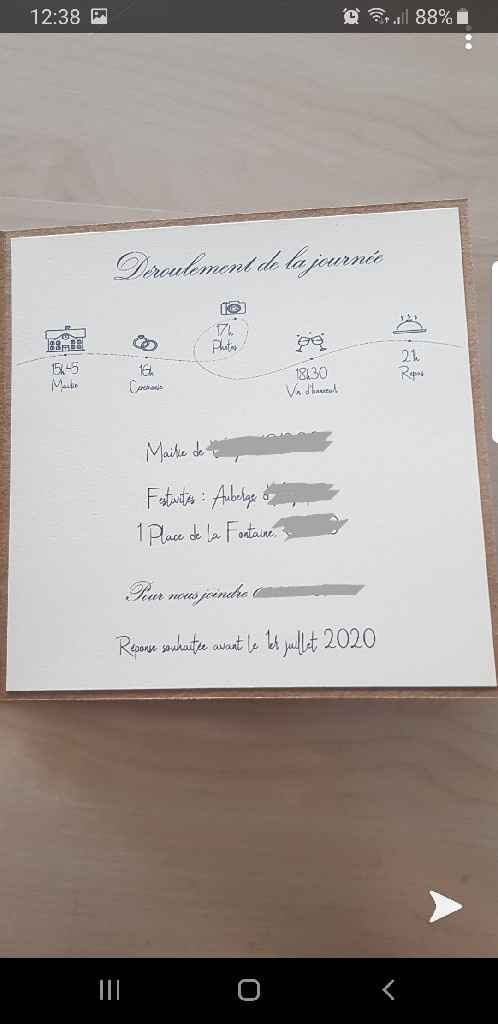 12:38 88%
Déroulement de la journée
17h
Photos
15h45
Mairie
16h
Cérémonie
18h30
Vin d'honneur
21h
Repas
Mairie de
Festivités : Auberge d'
1 Place de la Fontaine,
Pour nous joindre 0
Réponse souhaitée avant le 1er juillet 2020